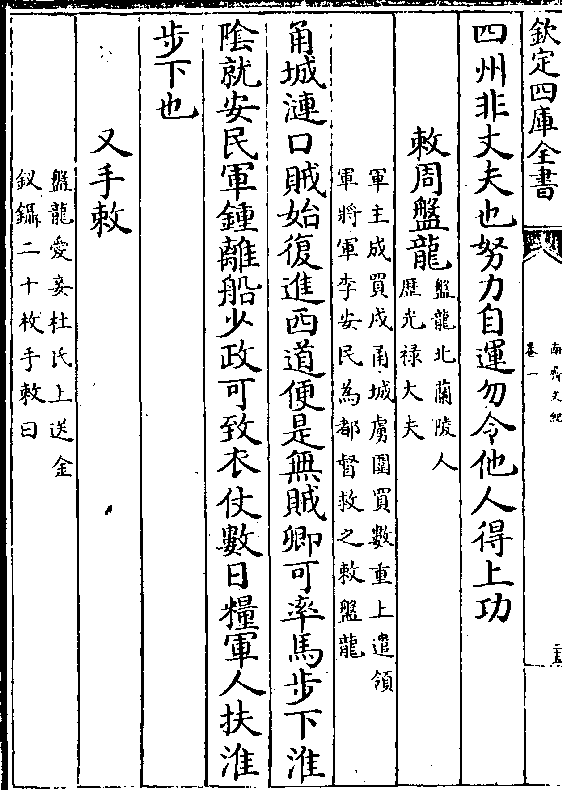 欽定四庫全書
南齊文紀
卷一
四州非丈夫也努力自運勿令他人得上功
敕周盤龍
盤龍北蘭陵人
歴光禄大夫
軍主成買戍甬城虜圍買數重上遣領
軍將軍李安民為都督救之敕盤龍
甬城漣口賊始復進西道便是無賊卿可率馬步下淮
陰就安民軍鍾離船少政可致衣仗數日糧軍人扶淮
步下也
又手敕
盤龍愛妾杜氏上送金
釵鑷二十枚手敕曰